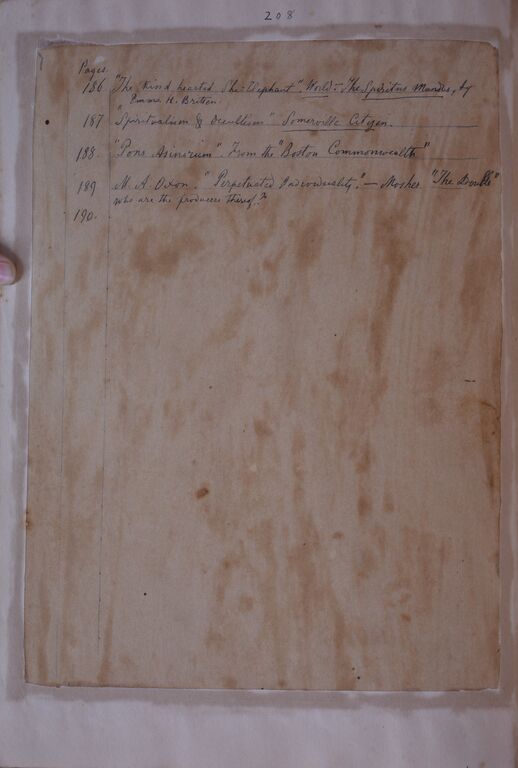 208
Pages.
186 "The Kind hearted She-Elephant". World:- The Spiritus Mundis, by
Emma H. Britten.
187 "Spiritualism & Occultism" Somerville Citizen.
188. "Pons Asinorum". From the "Boston Commonwealth"
189 M. A. Oxon. "Perpetuated Individuality." — Moshes "The Double"
who are the producers thereof?"
190.